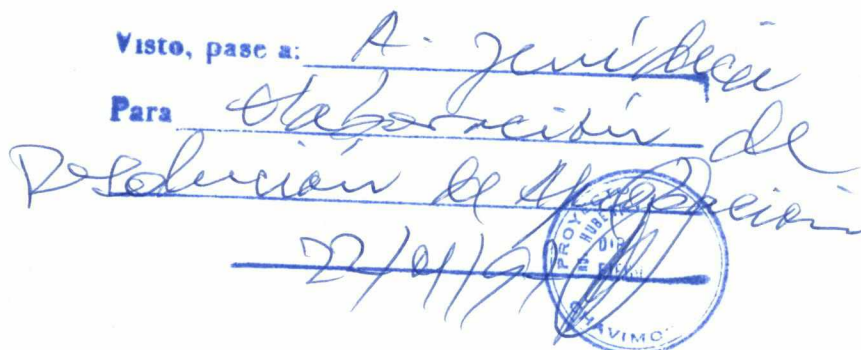 Visto, pase a: A. Jurídica
Para elaboración de
Resolución de Aprobación
PROYEC
CHAVIMO